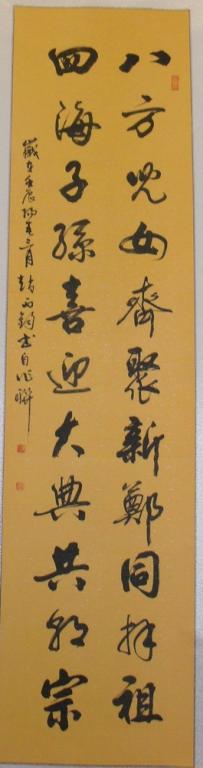 八方儿女齐聚新郑同拜祖
四海子孙喜迎大典共朝宗
岁在壬辰阳春三月
书自作联